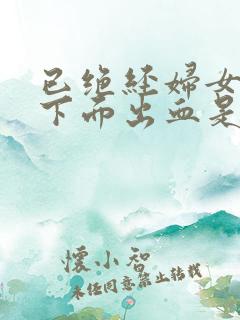 已绝经婦女
下而出血是
懷小智
未经同意禁止转载